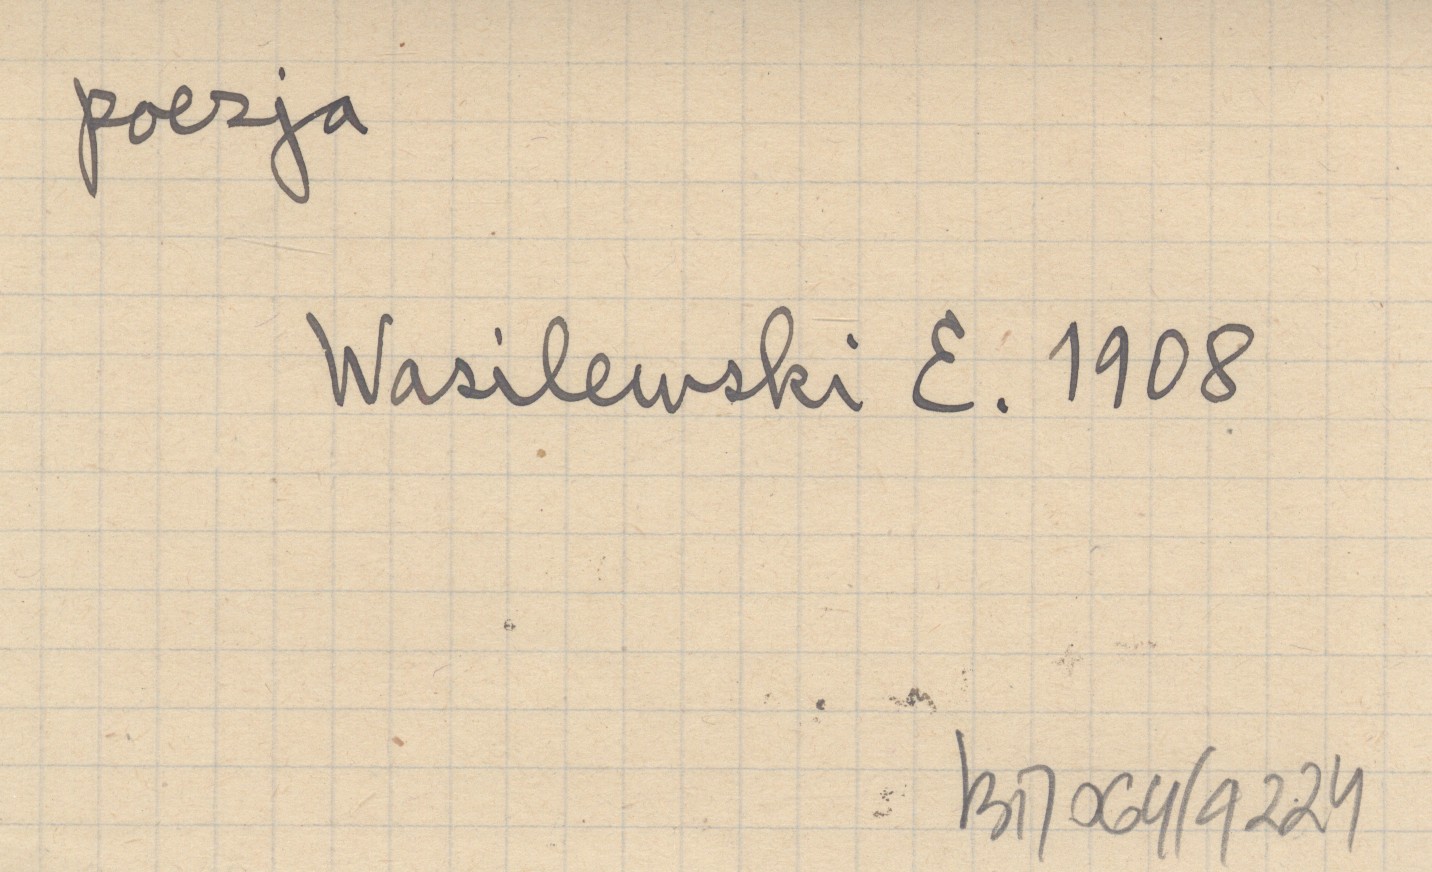 poezja
Wasilewski E. 1908
064/9224